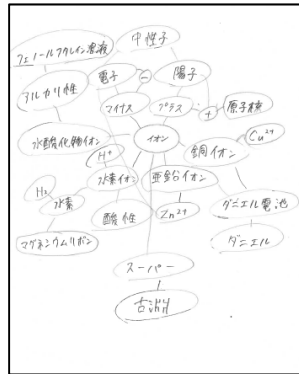 中性子
フェノールフタレイン溶液
電子
−
陽子
アルカリ性
マイナス
プラス
+
原子核
水酸化物イオン
イオン
Cu²⁺
H⁺
銅イオン
H₂
水素イオン
亜鉛イオン
水素
酸性
Zn²⁺
ダニエル電池
マグネシウムリボン
ダニエル
スーパー
古渕